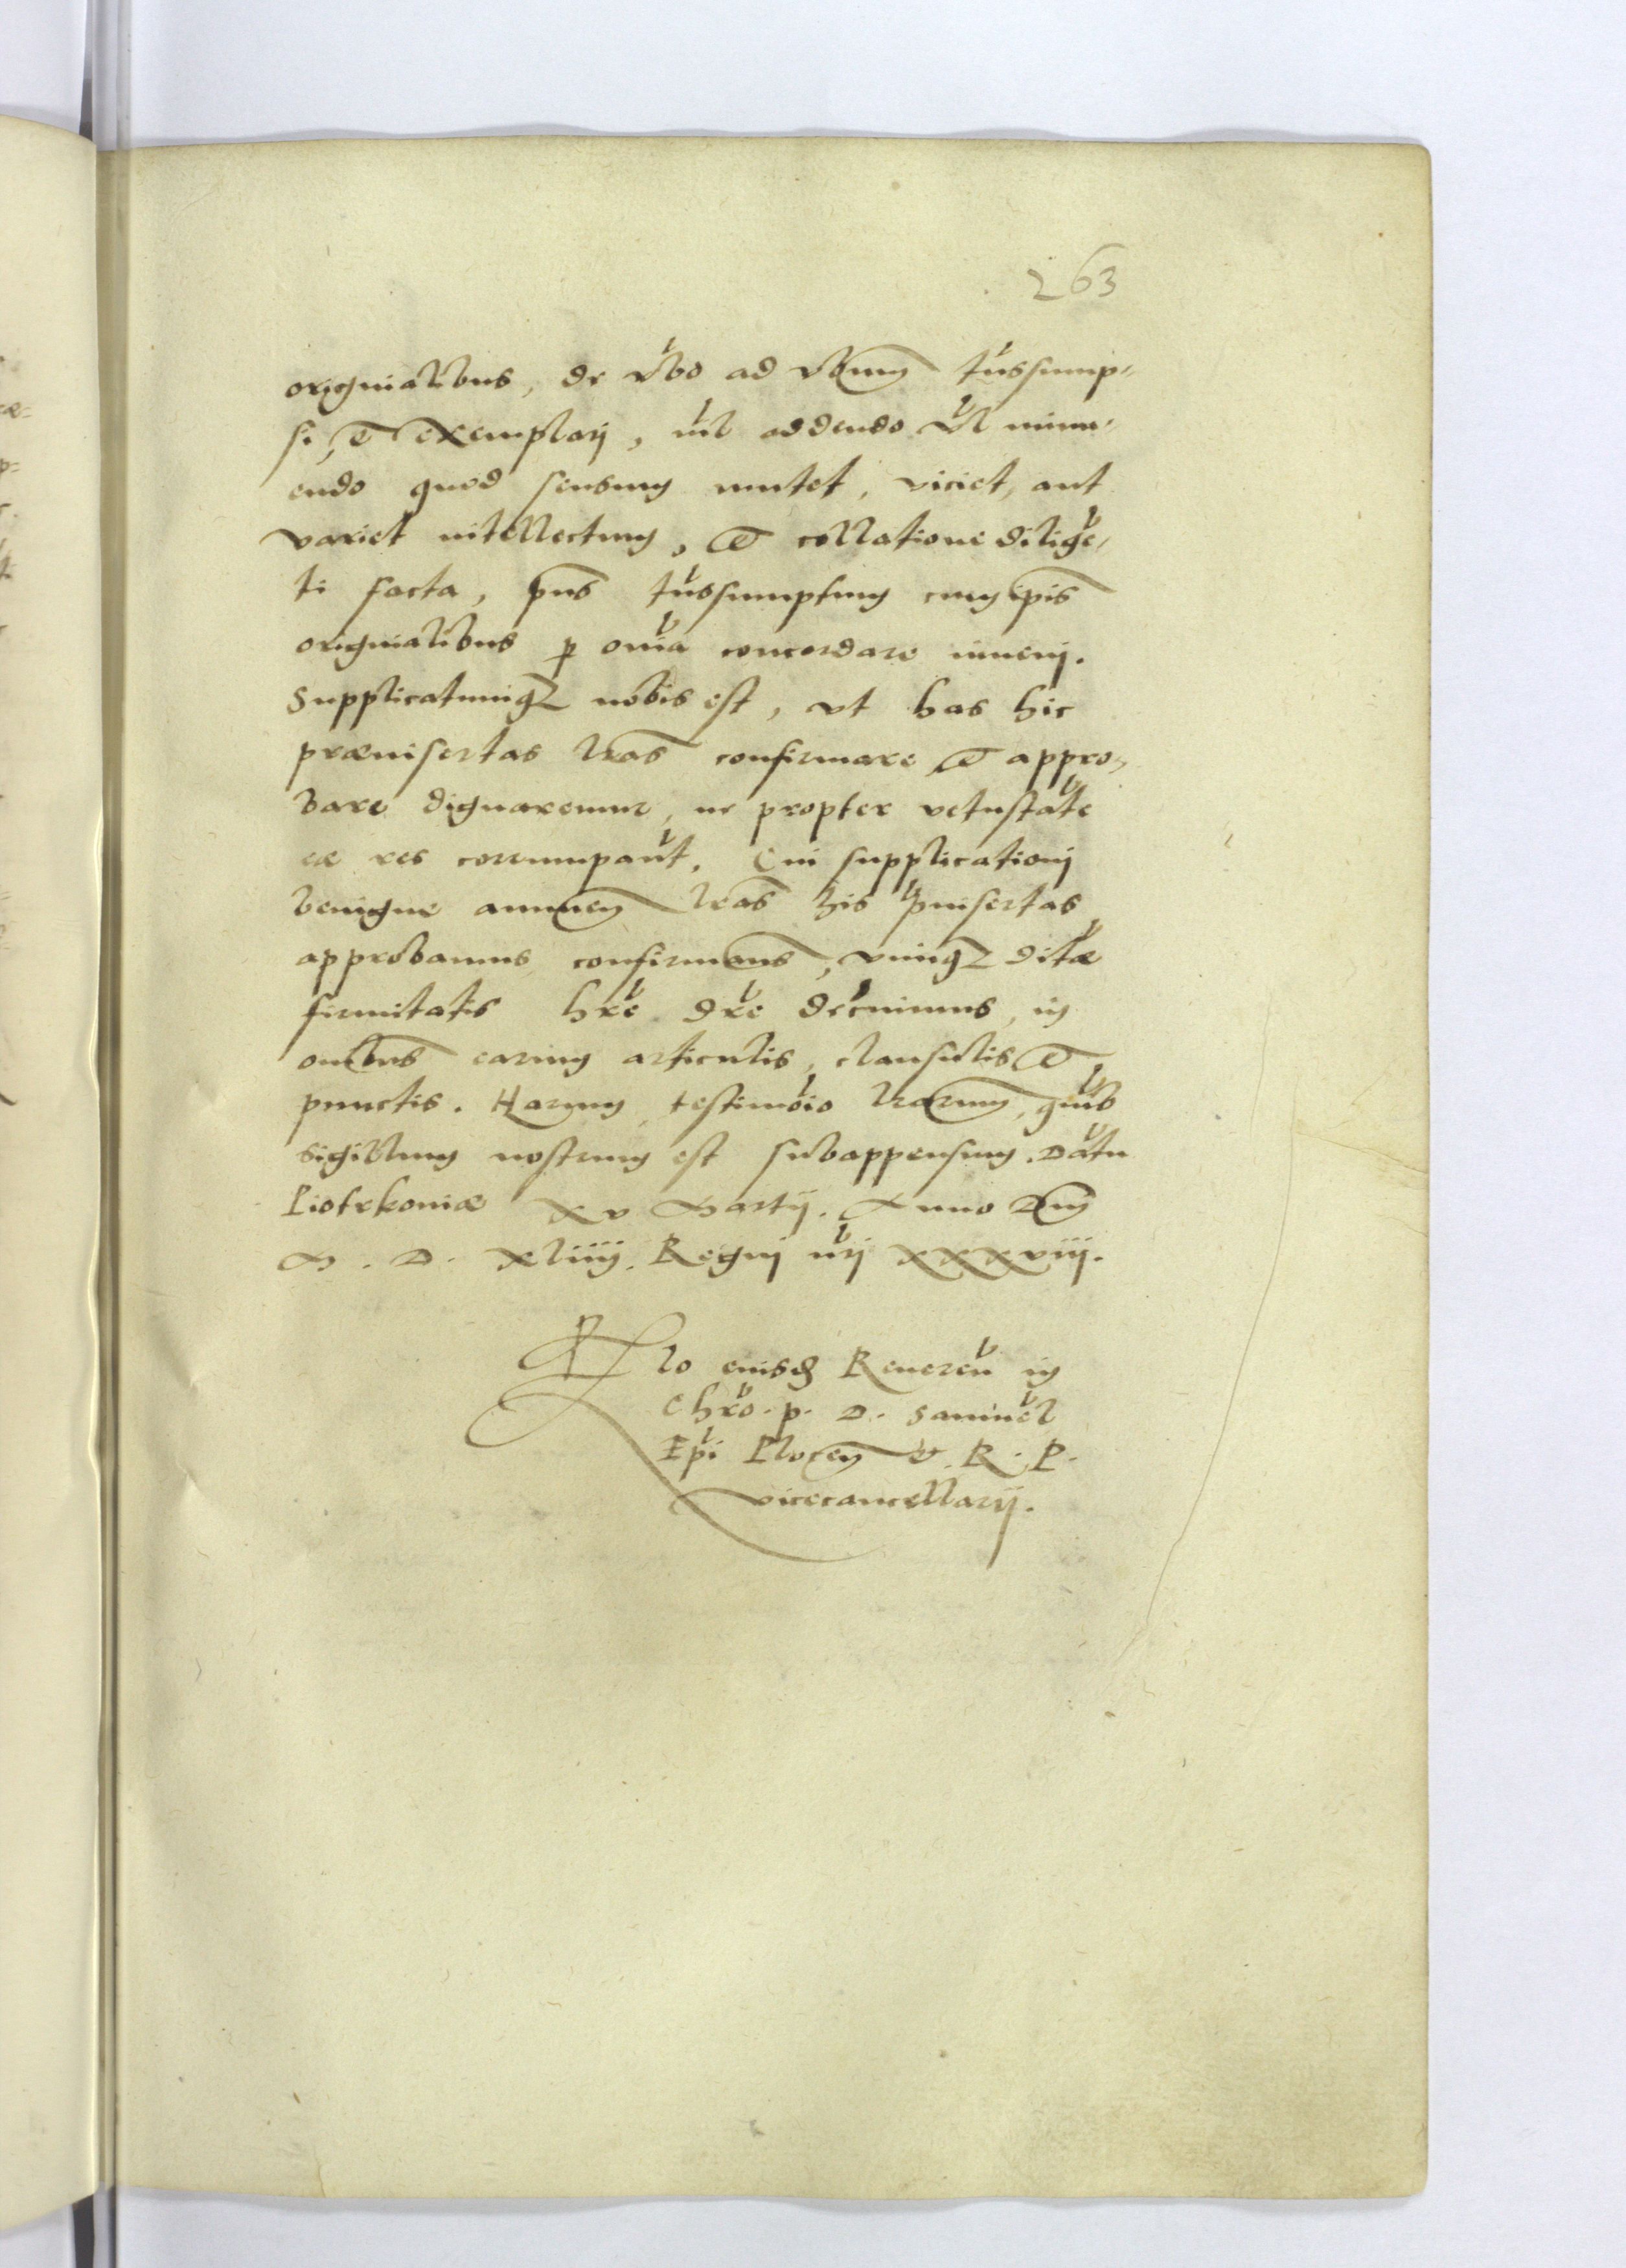 263
originalibus, de vbo ad vbum tussump-
si, et exemplavj, nil addendo vl minu-
endo quod sensum mutet, viciet, aut
variet intellectum, et collatione dilige-
ti facta, pns tussumptum cum ipis
originalibus p omia concordare inuenj.
Supplicatumqz nobis est, vt has hic
præinsertas lras confirmare et appro-
bare dignaremur, ne propter vetustate
eæ res corrumpant. Cui supplicationj
benigne annuen lras his pinsertas
approbamus confirmams, vimqz ditæ
firmitatis hre dre decnimus, in
omibus earum articulis, clausulis et
punctis. Harum testimoio lrarum, quib
Sigillum nostrum est subappensum. Datu
Piotrkoniæ xv Martij. Anno Dnj
M. D. xliiij. Regnj nrj xxxviij.
Rlo eiusd Reueren in
Chro. p. D. Samuel
Epi Plocen et R. P.
vicecancellarij.